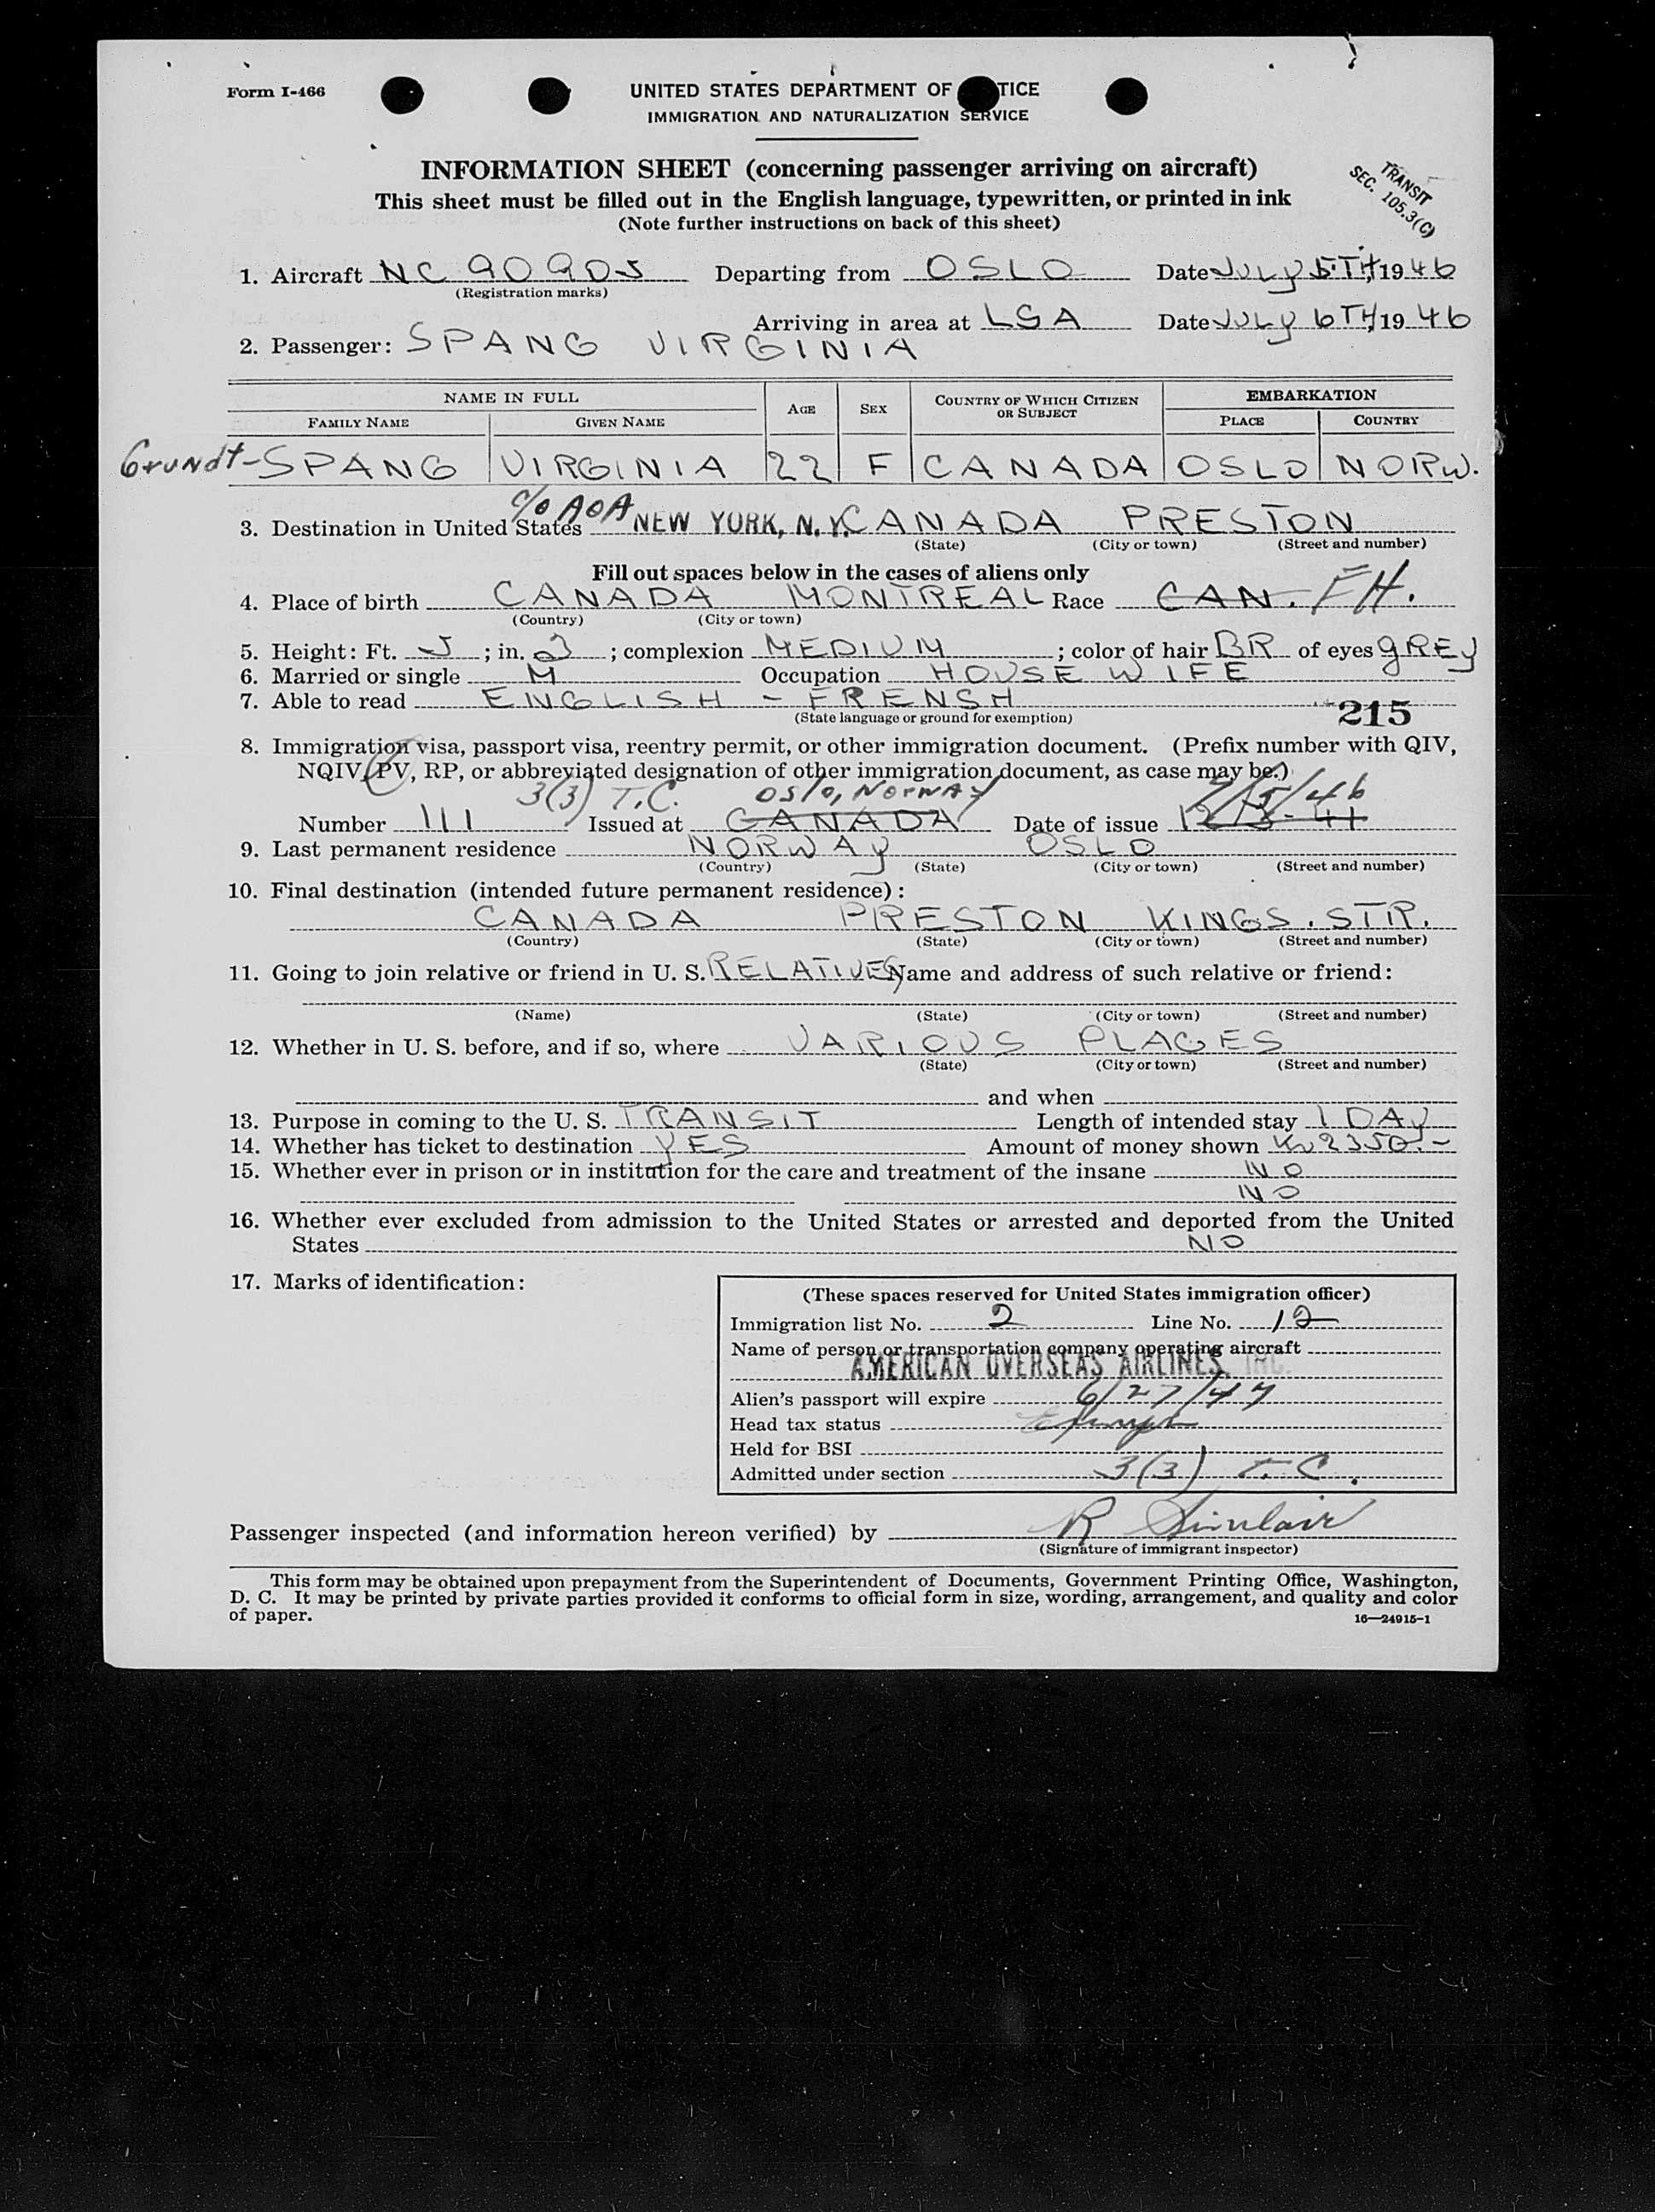 Form I-466
UNITED STATES DEPARTMENT OF TICE
IMMIGRATION AND NATURALIZATION SERVICE
INFORMATION SHEET (concerning passenger arriving on aircraft)
This sheet must be filled out in the English language, typewritten, or printed in ink
(Note further instructions on back of this sheet)
TRANSIT
SEC. 105.3(C)
1. Aircraft NC 90905 Departing from OSLO Date JULY 5.TH, 1946
(Registration marks)
Arriving in area at LGA Date JULY 6TH, 1946
2. Passenger: SPANG VIRGINIA
NAME IN FULL AGE SEX COUNTRY OF WHICH CITIZEN OR SUBJECT EMBARKATION
FAMILY NAME GIVEN NAME PLACE COUNTRY
Grundt-SPANG VIRGINIA 22 F CANADA OSLO NORW.
c/o AOA
3. Destination in United States NEW YORK, N.Y. CANADA PRESTON
(State) (City or town) (Street and number)
Fill out spaces below in the cases of aliens only
4. Place of birth CANADA MONTREAL Race CAN. FH.
(Country) (City or town)
5. Height: Ft. 5; in. 2; complexion MEDIUM; color of hair BR of eyes GREY
6. Married or single M Occupation HOUSE WIFE
7. Able to read ENGLISH - FRENSH
(State language or ground for exemption) 215
8. Immigration visa, passport visa, reentry permit, or other immigration document. (Prefix number with QIV,
NQIV, PV, RP, or abbreviated designation of other immigration document, as case may be.)
3(3) T.C. Oslo, Norway 7/5/46
Number 111 Issued at CANADA Date of issue 12/3-41
9. Last permanent residence NORWAY OSLO
(Country) (State) (City or town) (Street and number)
10. Final destination (intended future permanent residence):
CANADA PRESTON KINGS. STR.
(Country) (State) (City or town) (Street and number)
11. Going to join relative or friend in U. S. RELATIVES Name and address of such relative or friend:
(Name) (State) (City or town) (Street and number)
12. Whether in U. S. before, and if so, where VARIOUS PLACES
(State) (City or town) (Street and number)
and when
13. Purpose in coming to the U. S. TRANSIT Length of intended stay 1 DAY
14. Whether has ticket to destination YES Amount of money shown Kr 2350.-
15. Whether ever in prison or in institution for the care and treatment of the insane NO
NO
16. Whether ever excluded from admission to the United States or arrested and deported from the United
States NO
17. Marks of identification:
(These spaces reserved for United States immigration officer)
Immigration list No. 2 Line No. 12
Name of person or transportation company operating aircraft
AMERICAN OVERSEAS AIRLINES, INC.
Alien's passport will expire 6/27/47
Head tax status Exempt
Held for BSI
Admitted under section 3(3) T.C.
Passenger inspected (and information hereon verified) by R Sinclair
(Signature of immigrant inspector)
This form may be obtained upon prepayment from the Superintendent of Documents, Government Printing Office, Washington,
D. C. It may be printed by private parties provided it conforms to official form in size, wording, arrangement, and quality and color
of paper.
16—24915-1